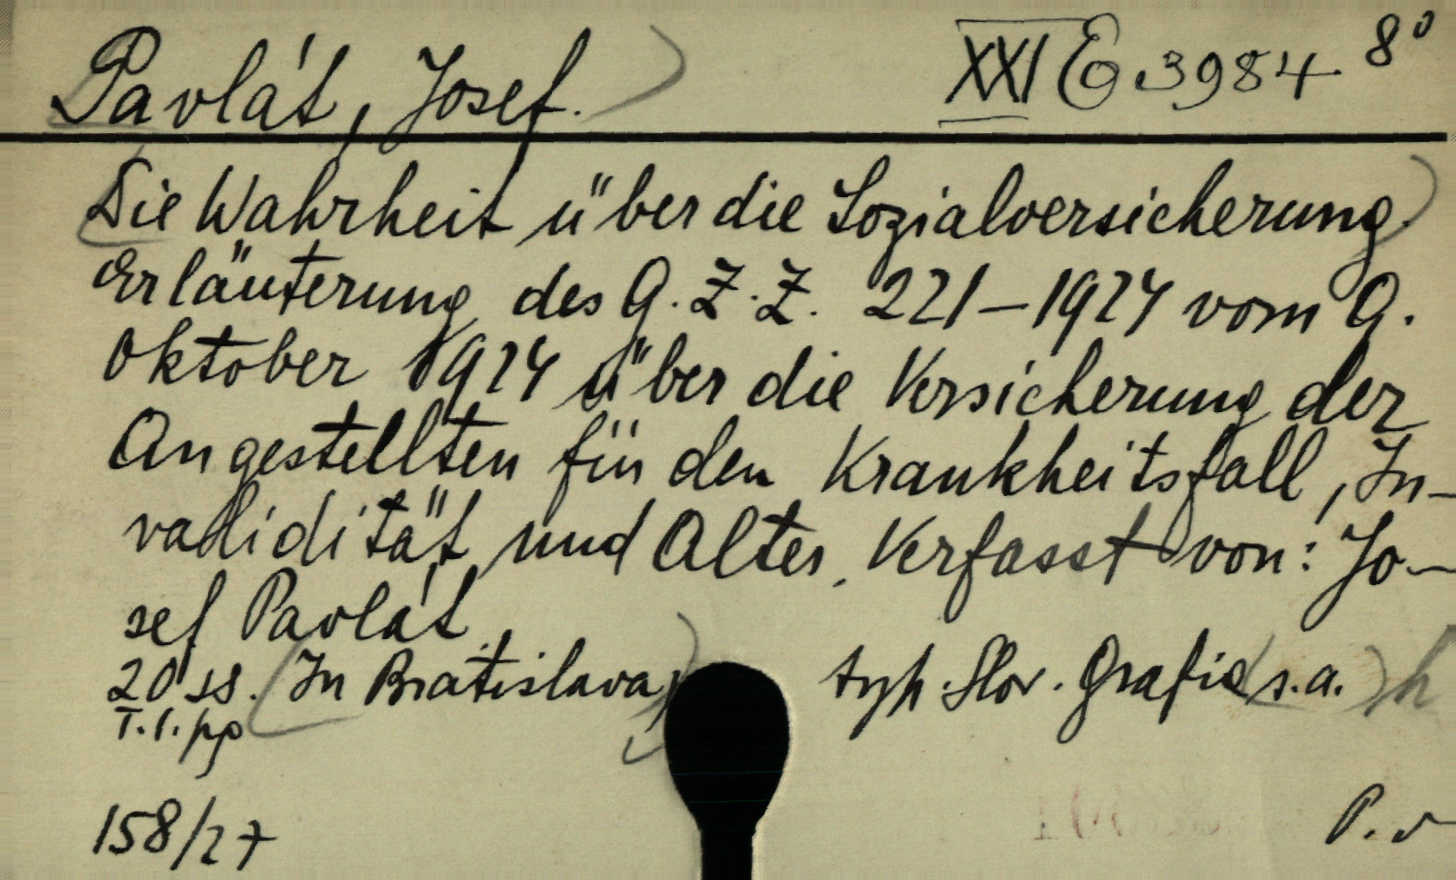 Pavlát, Josef.
XXI E 3984 8°
Die Wahrheit über die Sozialversicherung.
Erläuterung des G. Z. Z. 221-1924 vom 9.
Oktober 1924 über die Versicherung der
Angestellten für den Krankheitsfall, In-
validität und Alter. Verfasst von: Jo-
sef Pavlát.
20 ss. In Bratislava, typ. Slov. Grafia s.a.
158/27